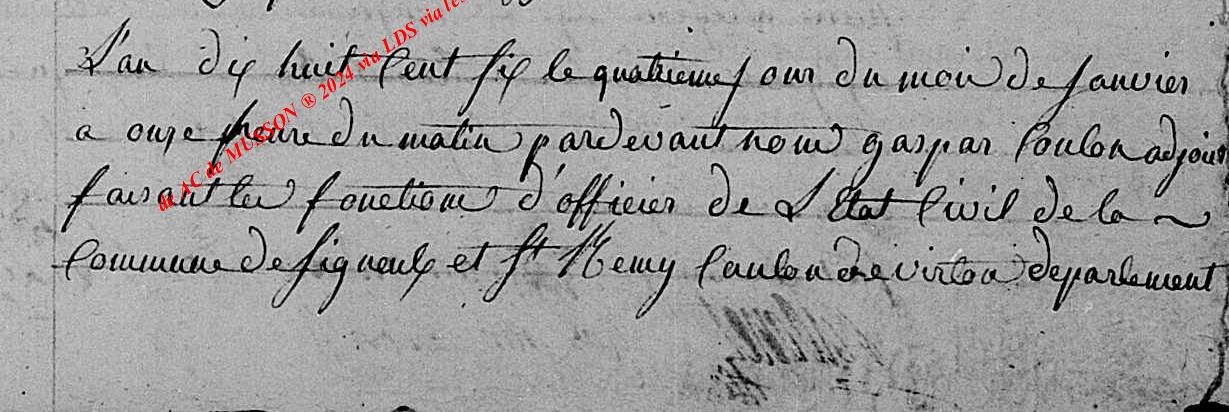 L'an dix huit Cent six le quatrieme jour du mois de Janvier
a onze heure du matin pardevant nous gaspar Coulon adjoint
faisant les fonctions d'officier de L'Etat Civil de la ~
Commune de signeulx et St Remy Canton de virton departement
de AC de MUSSON ® 2024 via LDS via